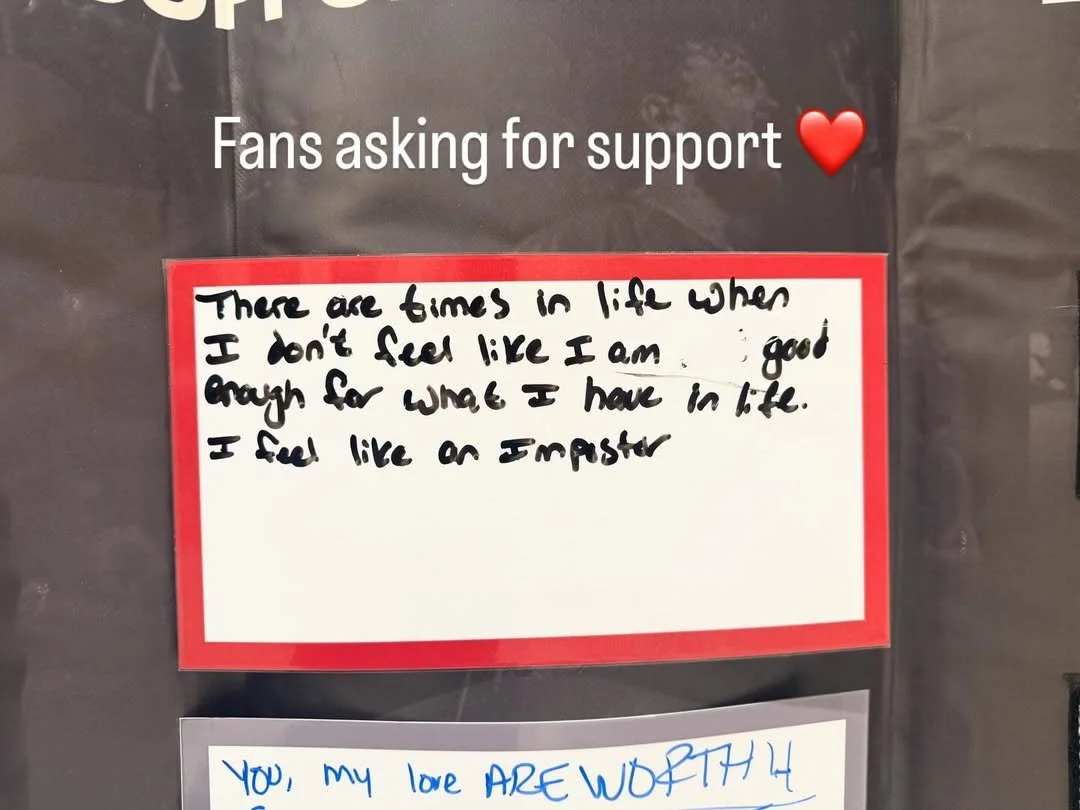 Fans asking for support ❤️
There are times in life when
I don't feel like I am good
enough for what I have in life.
I feel like an Imposter
YOU, my love ARE WORTHY